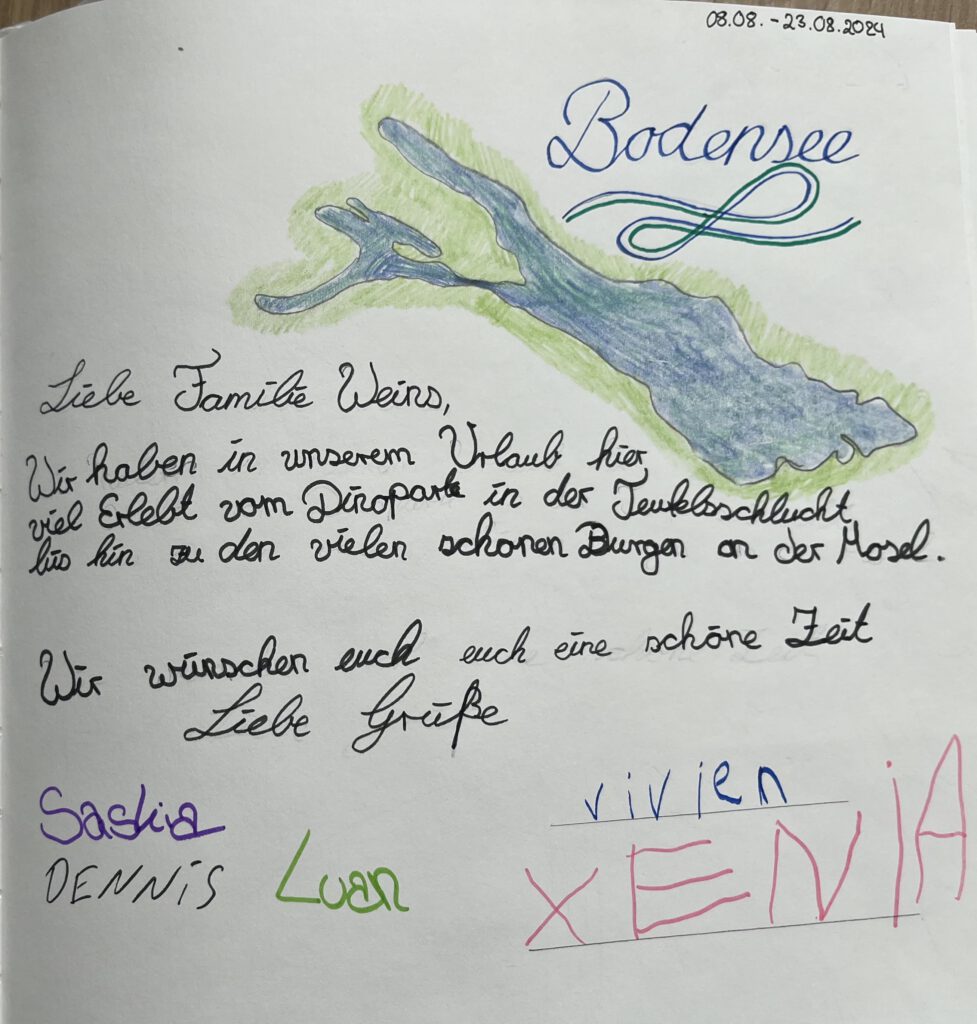 08.08. - 23.08.2024
Bodensee
Liebe Familie Weins,
Wir haben in unserem Urlaub hier
viel Erlebt vom Dinopark in der Teufelsschlucht
bis hin zu den vielen schonen Burgen an der Mosel.
Wir wünschen euch euch eine schöne Zeit
Liebe Grüße
Saskia
vivien
DENNIS Luan
XENIA